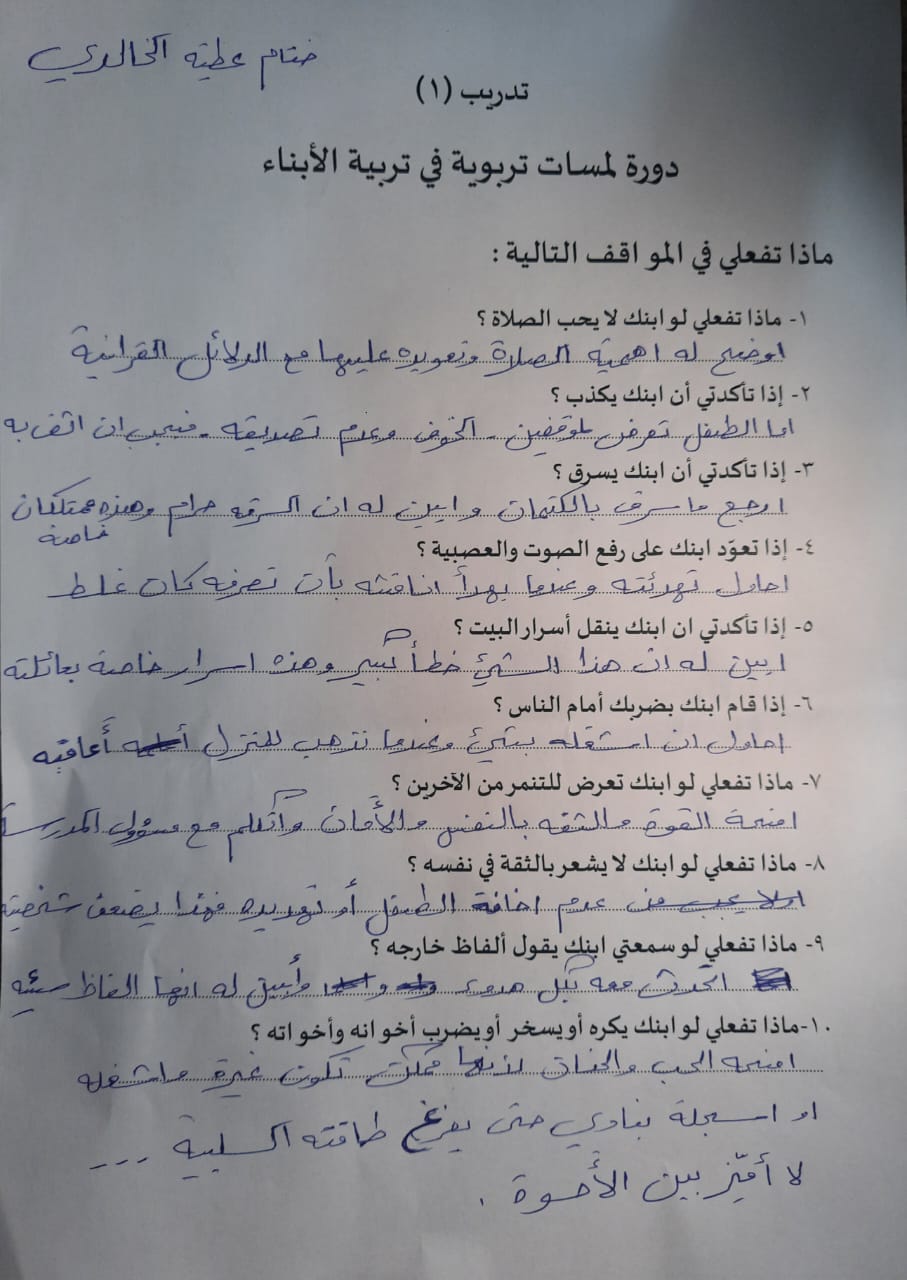 ختام عطية الخالدي
تدريب (١)
دورة لمسات تربوية في تربية الأبناء
ماذا تفعلي في المواقف التالية :
١- ماذا تفعلي لو ابنك لا يحب الصلاة ؟
اوضح له اهمية الصلاة وتعويده عليها مع الدلائل القرانية
٢- إذا تأكدتي أن ابنك يكذب ؟
اما الطفل تعرض لموقفين - الخوف وعدم تصديقه - فيجب ان اثق به
٣- إذا تأكدتي أن ابنك يسرق ؟
ارجع ما سرق بالكتمان وابين له ان السرقه حرام وهذه ممتلكات
خاصة
٤- إذا تعوّد ابنك على رفع الصوت والعصبية ؟
احاول تهدئته وعندما يهدأ اناقشه بأن تصرفه كان غلط
٥- إذا تأكدتي ان ابنك ينقل أسرار البيت ؟
ابين له ان هذا الشيئ خطأ كبير وهذه اسرار خاصة بعائلته
٦- إذا قام ابنك بضربك أمام الناس ؟
احاول ان اشغله بشيئ وعندما نذهب للمنزل أعاقبه
٧- ماذا تفعلي لو ابنك تعرض للتنمر من الآخرين ؟
امنحة القوة والثقه بالنفس والأمان واتكلم مع مسؤول المدرسة
٨- ماذا تفعلي لو ابنك لا يشعر بالثقة في نفسه ؟
عدم اخافة الطفل أو تهديده فهذا يضعف شخصيته
٩- ماذا تفعلي لو سمعتي ابنك يقول ألفاظ خارجه ؟
اتحدث معه بكل هدوء وأبين له انها الفاظ سيئه
١٠-ماذا تفعلي لو ابنك يكره أو يسخر أو يضرب أخوانه وأخواته ؟
امنحه الحب والحنان لأنها ممكن تكون غيرة واشغله
او اسجلة بنادي حتى يفرغ طاقته السلبية ...
لا أميّز بين الأخوة .